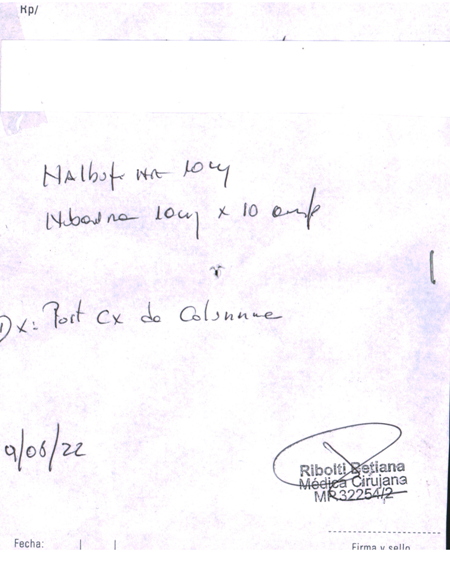 Rp/
Nalbufina 10mg
Nubaina 10mg x 10 amp
Dx: Post Cx de Columna
9/06/22
Ribolti Betiana
Médica Cirujana
MP.32254/2
Fecha:
Firma y sello